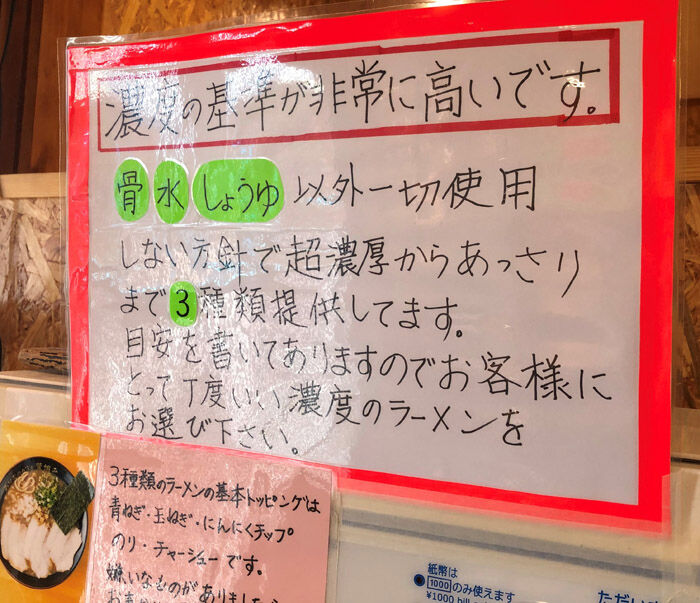 濃度の基準が非常に高いです。
骨 水 しょうゆ 以外一切使用
しない方針で超濃厚からあっさり
まで3種類提供してます。
目安を書いてありますのでお客様に
とって丁度いい濃度のラーメンを
お選び下さい。
3種類のラーメンの基本トッピングは
青ねぎ・玉ねぎ・にんにくチップ
のり・チャーシューです。
嫌いなものがありましたら
紙幣は
1000のみ使えます
¥1000 bill
ただい